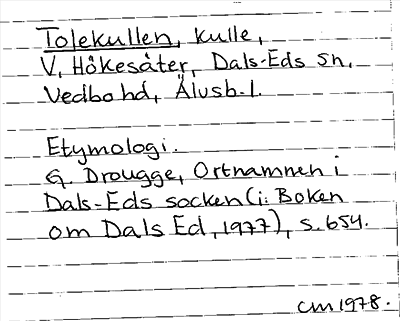 Tolekullen, kulle,
V. Håkesäter, Dals-Eds sn,
Vedbo hd, Älvsb. l.
Etymologi.
G. Drougge, Ortnamnen i
Dals-Eds socken (i: Boken
om Dals Ed, 1977), s. 654.
CM 1978.